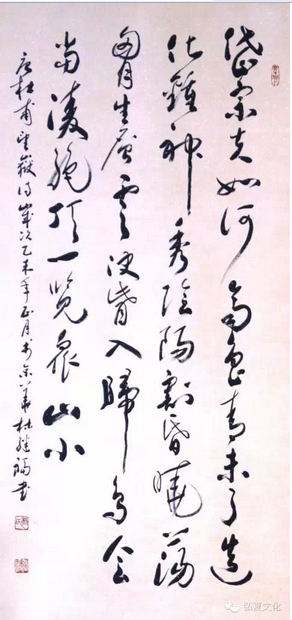 岱宗夫如何齊魯青未了造
化鍾神秀陰陽割昏曉蕩
胸生層雲決眥入歸鳥會
當凌絕頂一覽眾山小
唐杜甫望嶽詩歲次乙未年正月於京華杜福書
弘夏文化